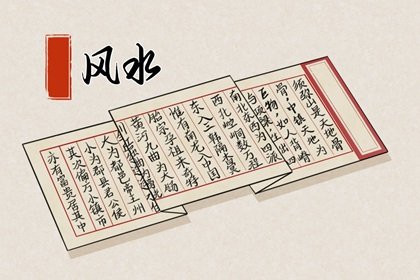 风水
须弥山是天地骨
骨,中镇天地为
巨物,如人背脊
东西为四派
南北
西北崆峒数万程
东入三韩隔杳冥
惟有南龙入中国
胎宗孕祖来奇特
黄河九曲为大肠
大为都邑帝王州
小为郡县君公侯
其次偏方小镇市
亦有富贵居其中